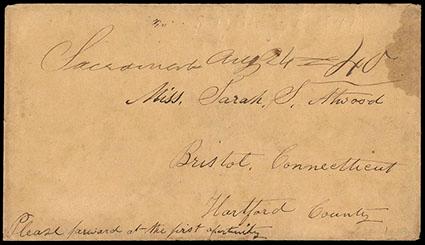 Sacramento Aug 24 40
Miss. Sarah, S, Atwood
Bristol, Connecticut
Hartford County
Please forward at the first opertunity